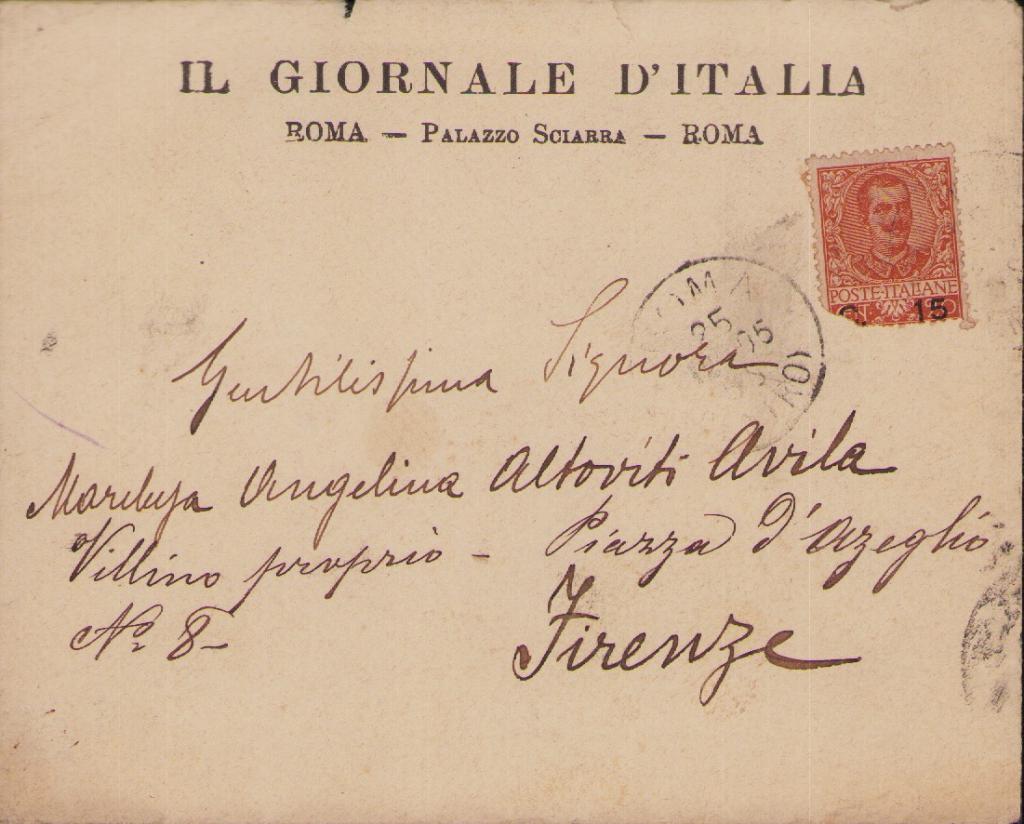 IL GIORNALE D'ITALIA
ROMA — PALAZZO SCIARRA — ROMA
POSTE·ITALIANE
C. 15
ROMA
25
05
Gentilissima Signora
Marchesa Angelina Altoviti Avila
Villino proprio - Piazza d'Azeglio
No. 8-
Firenze